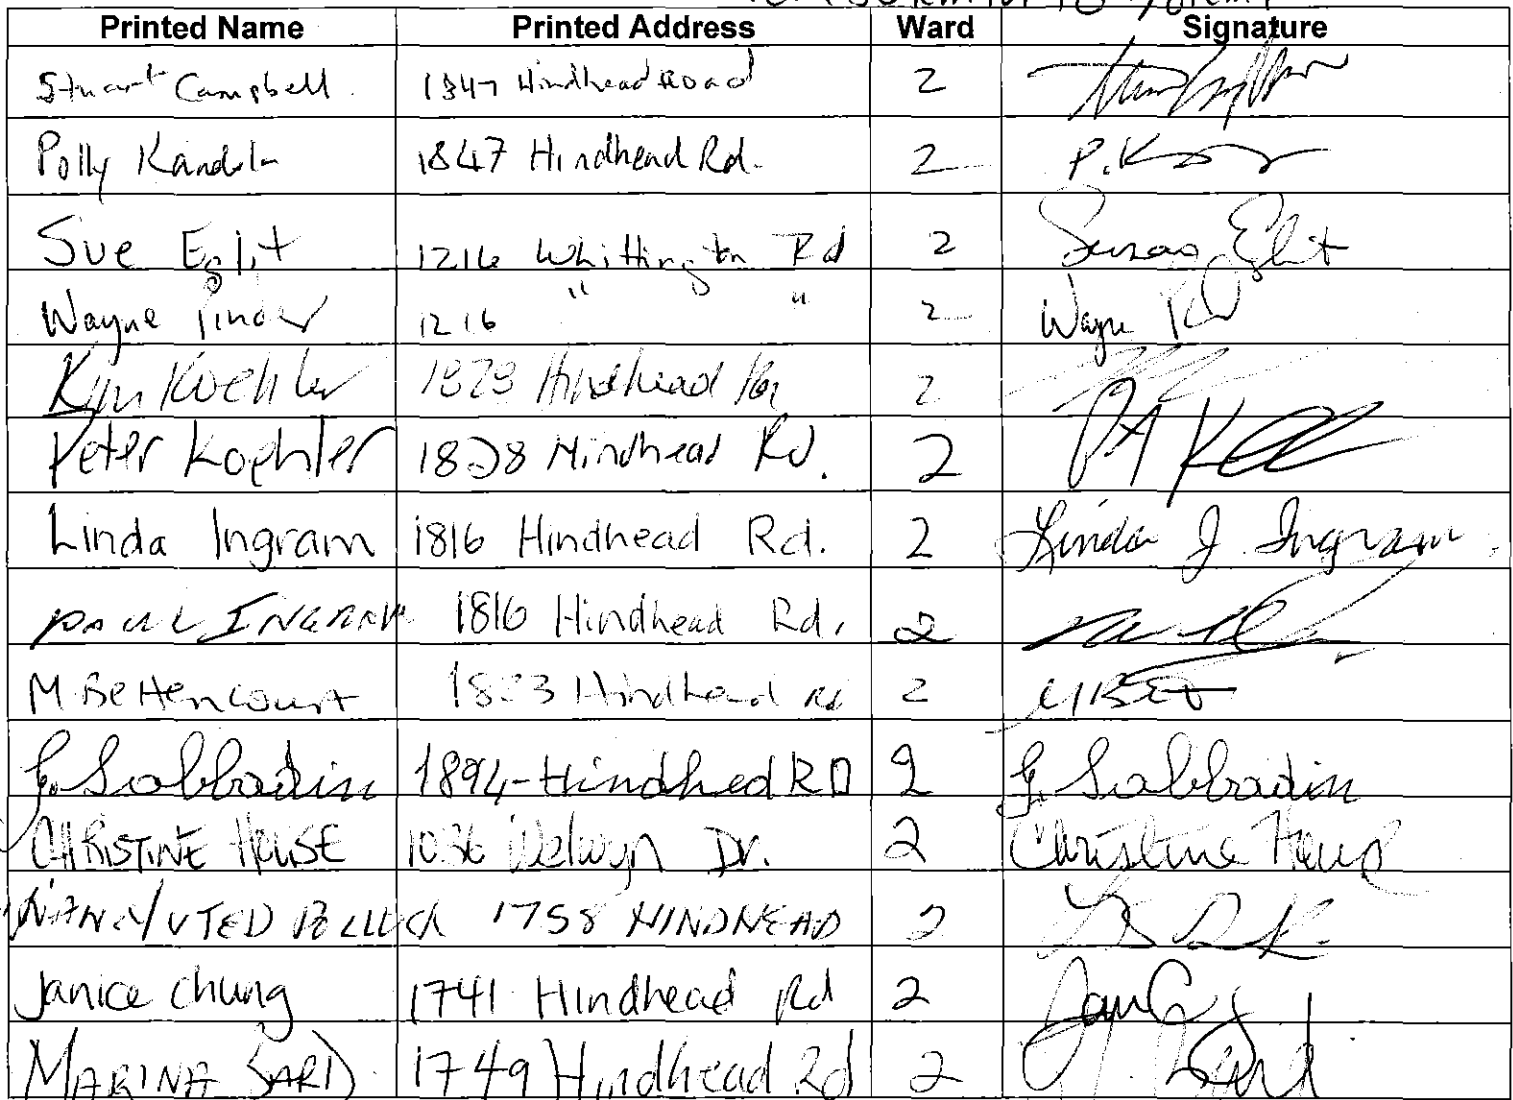 Printed Name Printed Address Ward Signature
Stuart Campbell 1847 Hindhead Road 2
Polly Kandola 1847 Hindhead Rd. 2 P.K
Sue Eglit 1216 Whittington Rd 2 Susan Eglit
Wayne Pinder 1216 " " 2 Wayne
Kim Koehler 1828 Hindhead 2
Peter Koehler 1828 Hindhead Rd. 2
Linda Ingram 1816 Hindhead Rd. 2 Linda J Ingram
PAUL INGRAM 1816 Hindhead Rd. 2
M Bettencourt 1823 Hindhead Rd 2
G. Sabbadin 1894-Hindhed RD 2 G. Sabbadin
CHRISTINE HOUSE 1036 Welwyn Dr. 2 Christine House
1758 HINDHEAD 2
Janice Chung 1741 Hindhead Rd 2
MARINA SARD 1749 Hindhead Rd 2